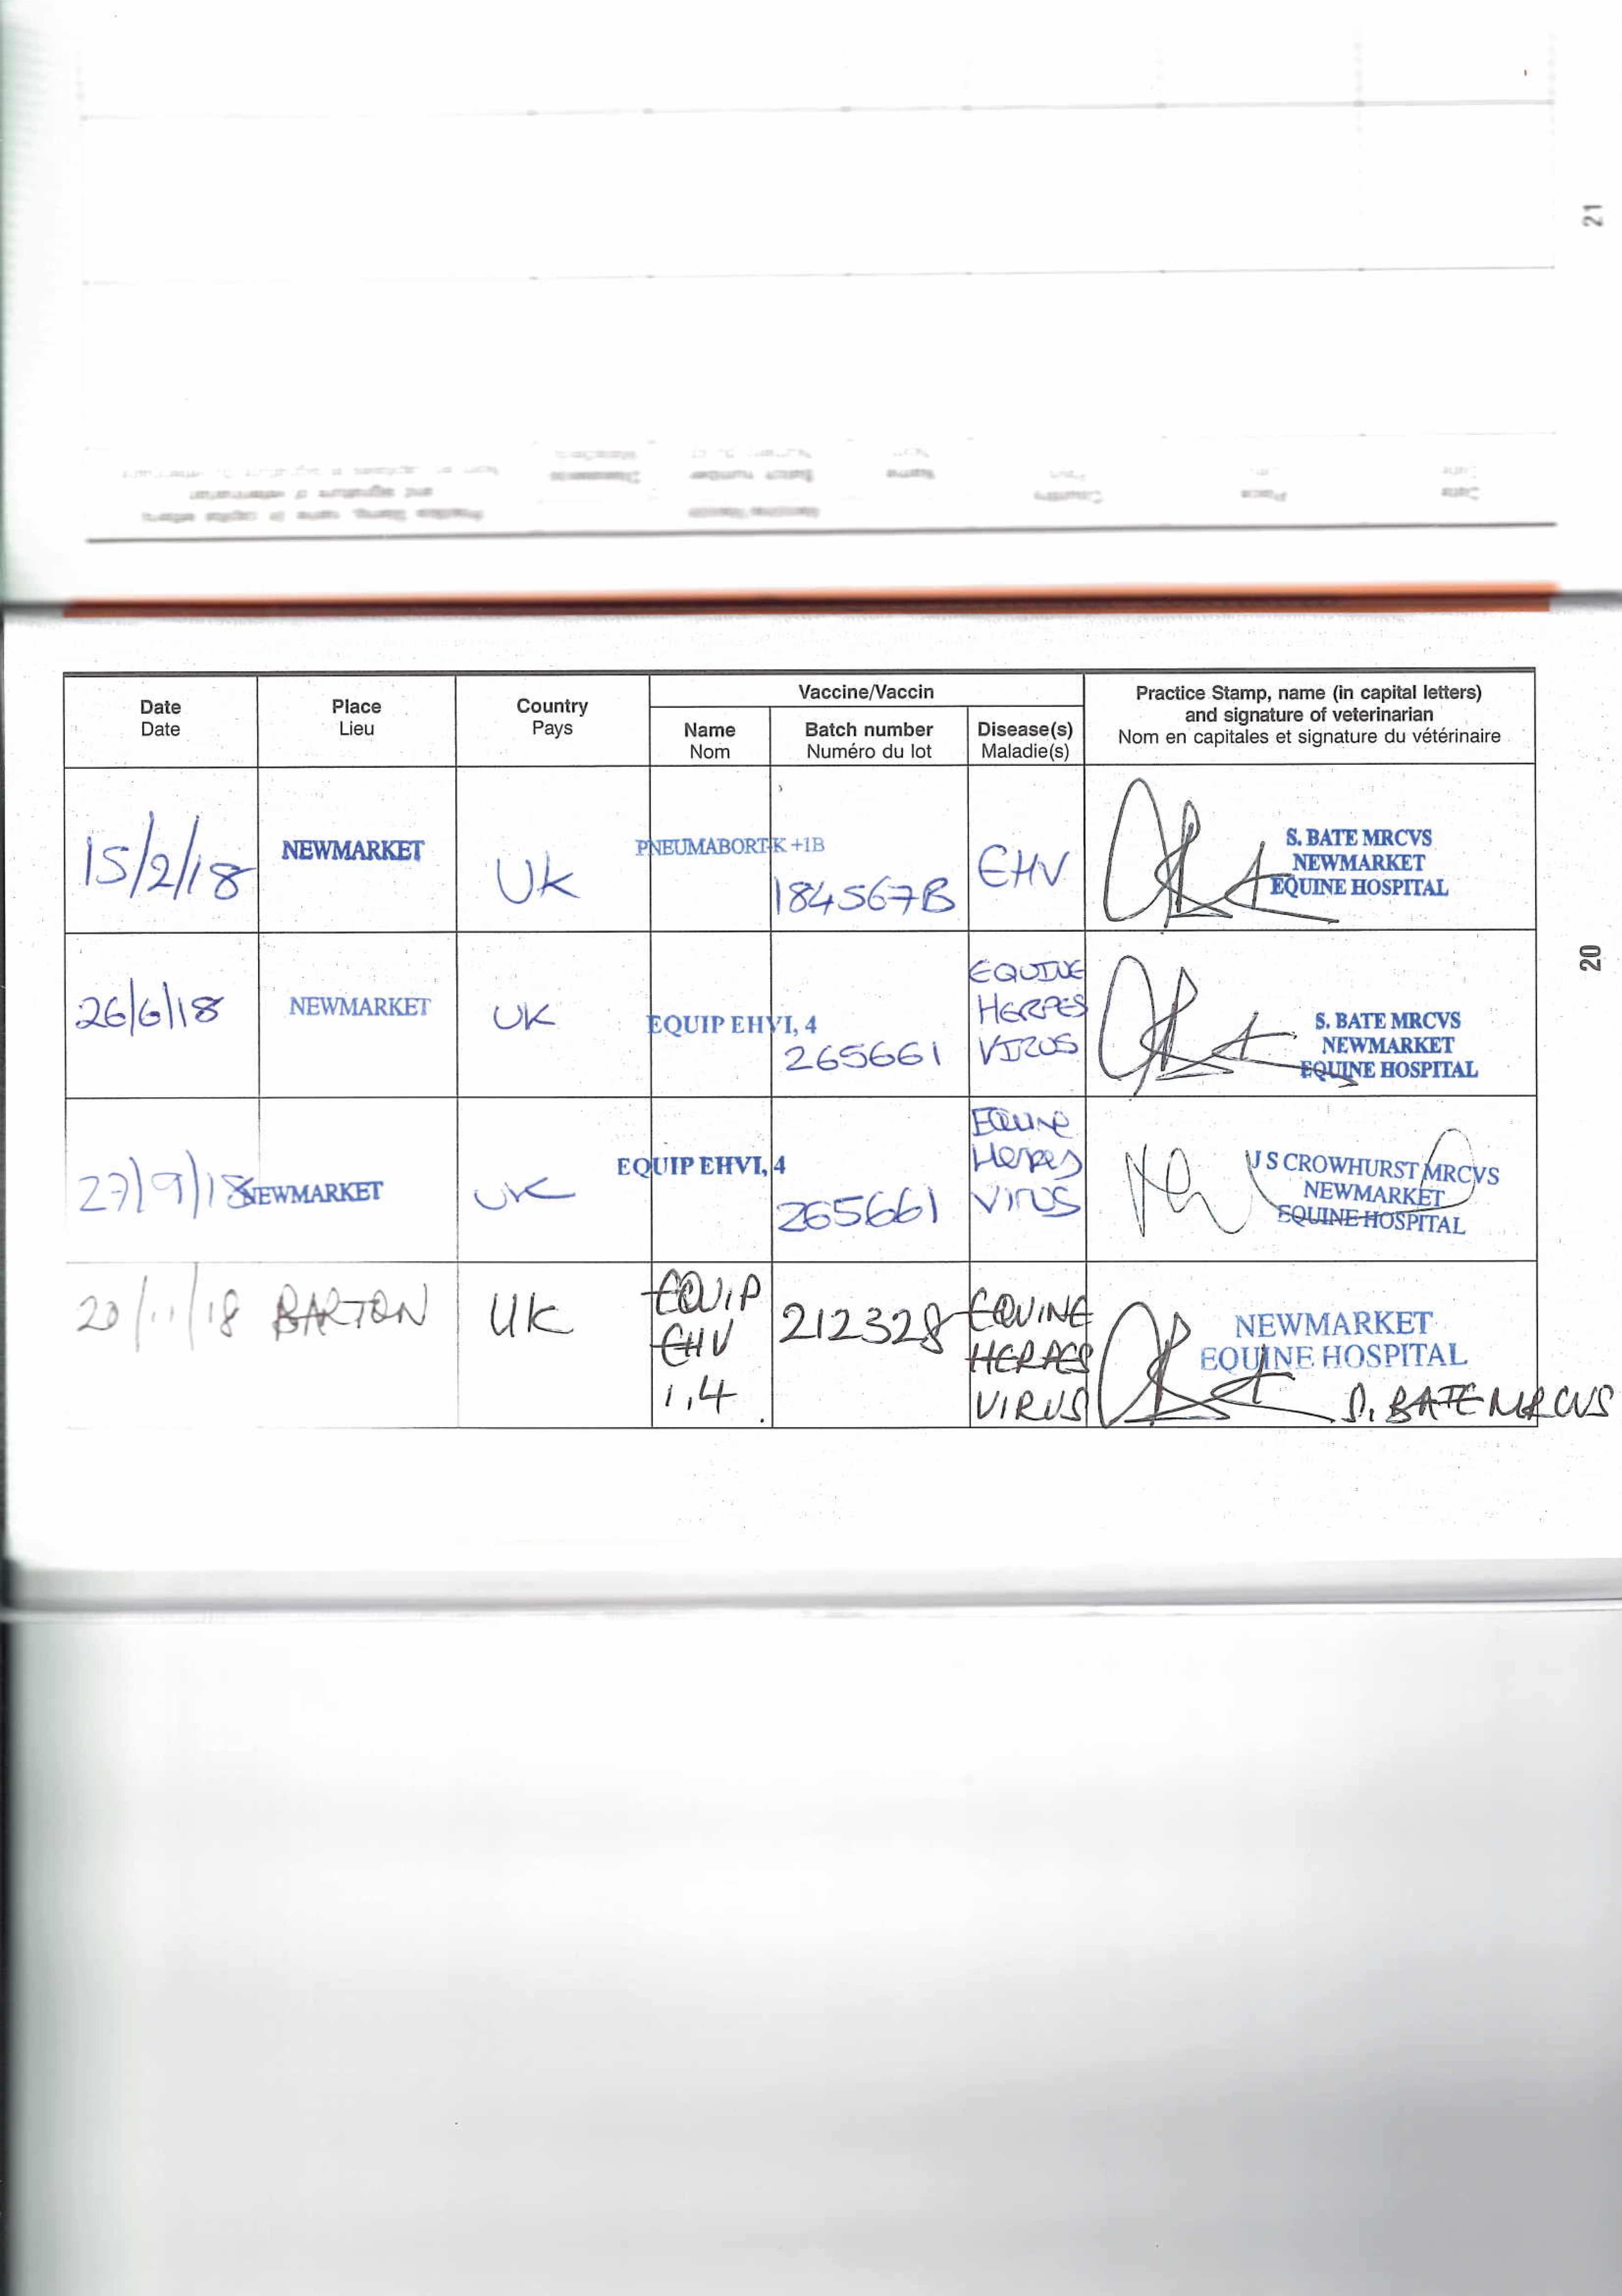 21
Date
Date
Place
Lieu
Country
Pays
Vaccine/Vaccin
Name
Nom
Batch number
Numéro du lot
Disease(s)
Maladie(s)
Practice Stamp, name (in capital letters)
and signature of veterinarian
Nom en capitales et signature du vétérinaire
15/2/18
NEWMARKET
UK
PNEUMABORT-K +1B
184567B
EHV
S. BATE MRCVS
NEWMARKET
EQUINE HOSPITAL
26/6/18
NEWMARKET
UK
EQUIP EHV1, 4
265661
EQUINE
HERPES
VIRUS
S. BATE MRCVS
NEWMARKET
EQUINE HOSPITAL
20
27/9/18
NEWMARKET
UK
EQUIP EHV1, 4
265661
Equine
Herpes
Virus
J S CROWHURST MRCVS
NEWMARKET
EQUINE HOSPITAL
20/11/18
BARTON
UK
EQUIP
EHV
1,4
212328
EQUINE
HERPES
VIRUS
NEWMARKET
EQUINE HOSPITAL
S. BATE MRCVS